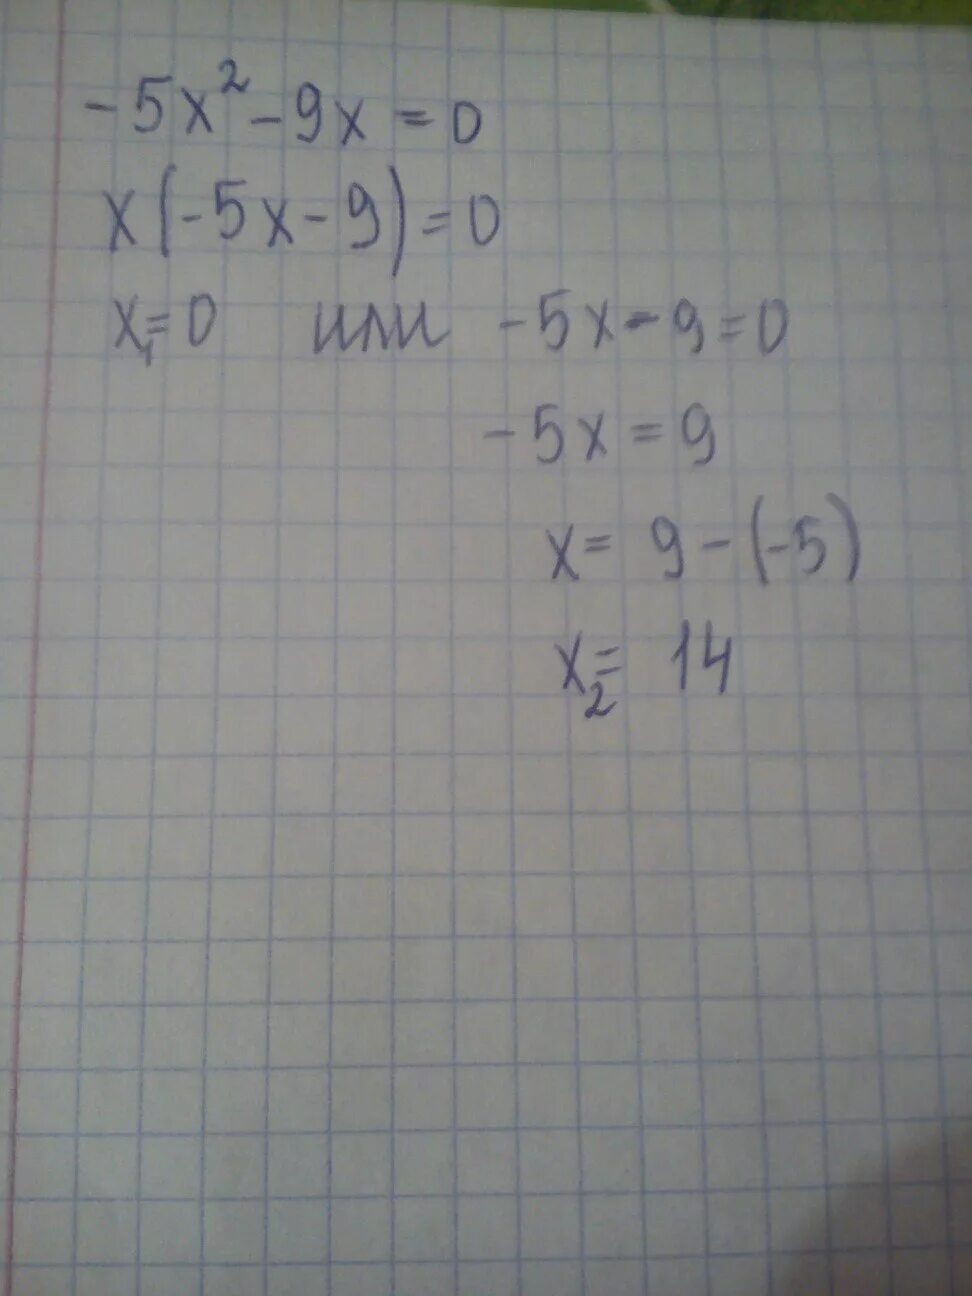 -5x² - 9x = 0
x(-5x - 9) = 0
x₁ = 0 или -5x - 9 = 0
-5x = 9
x = 9 - (-5)
x₂ = 14